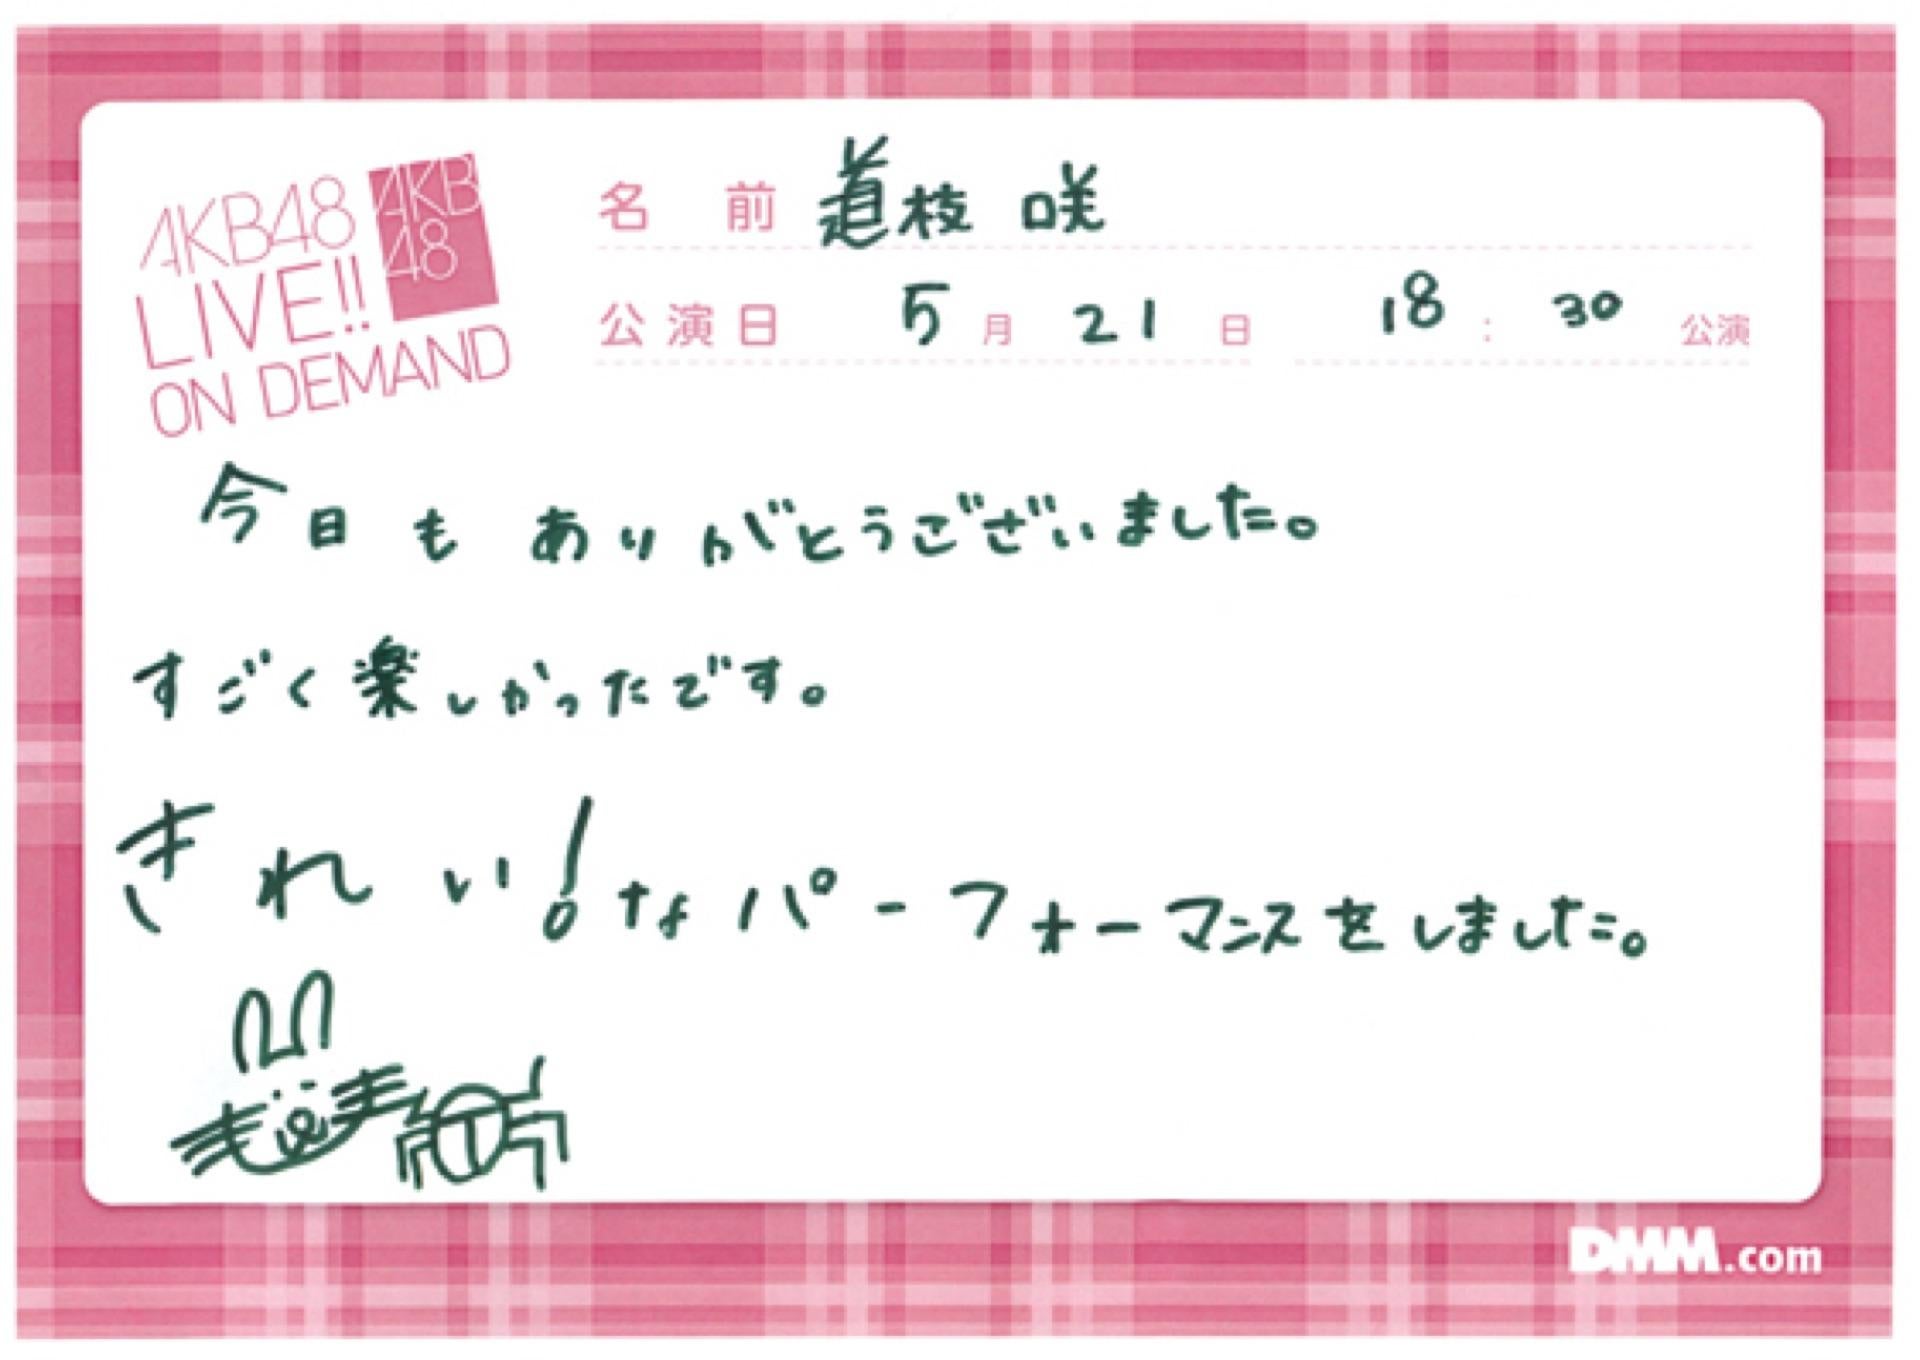 AKB48
LIVE!!
ON DEMAND
AKB
48
名前 道枝 咲
公演日 5月21日 18:30公演
今日もありがとうございました。
すごく楽しかったです。
きれい!なパーフォーマンスをしました。
DMM.com